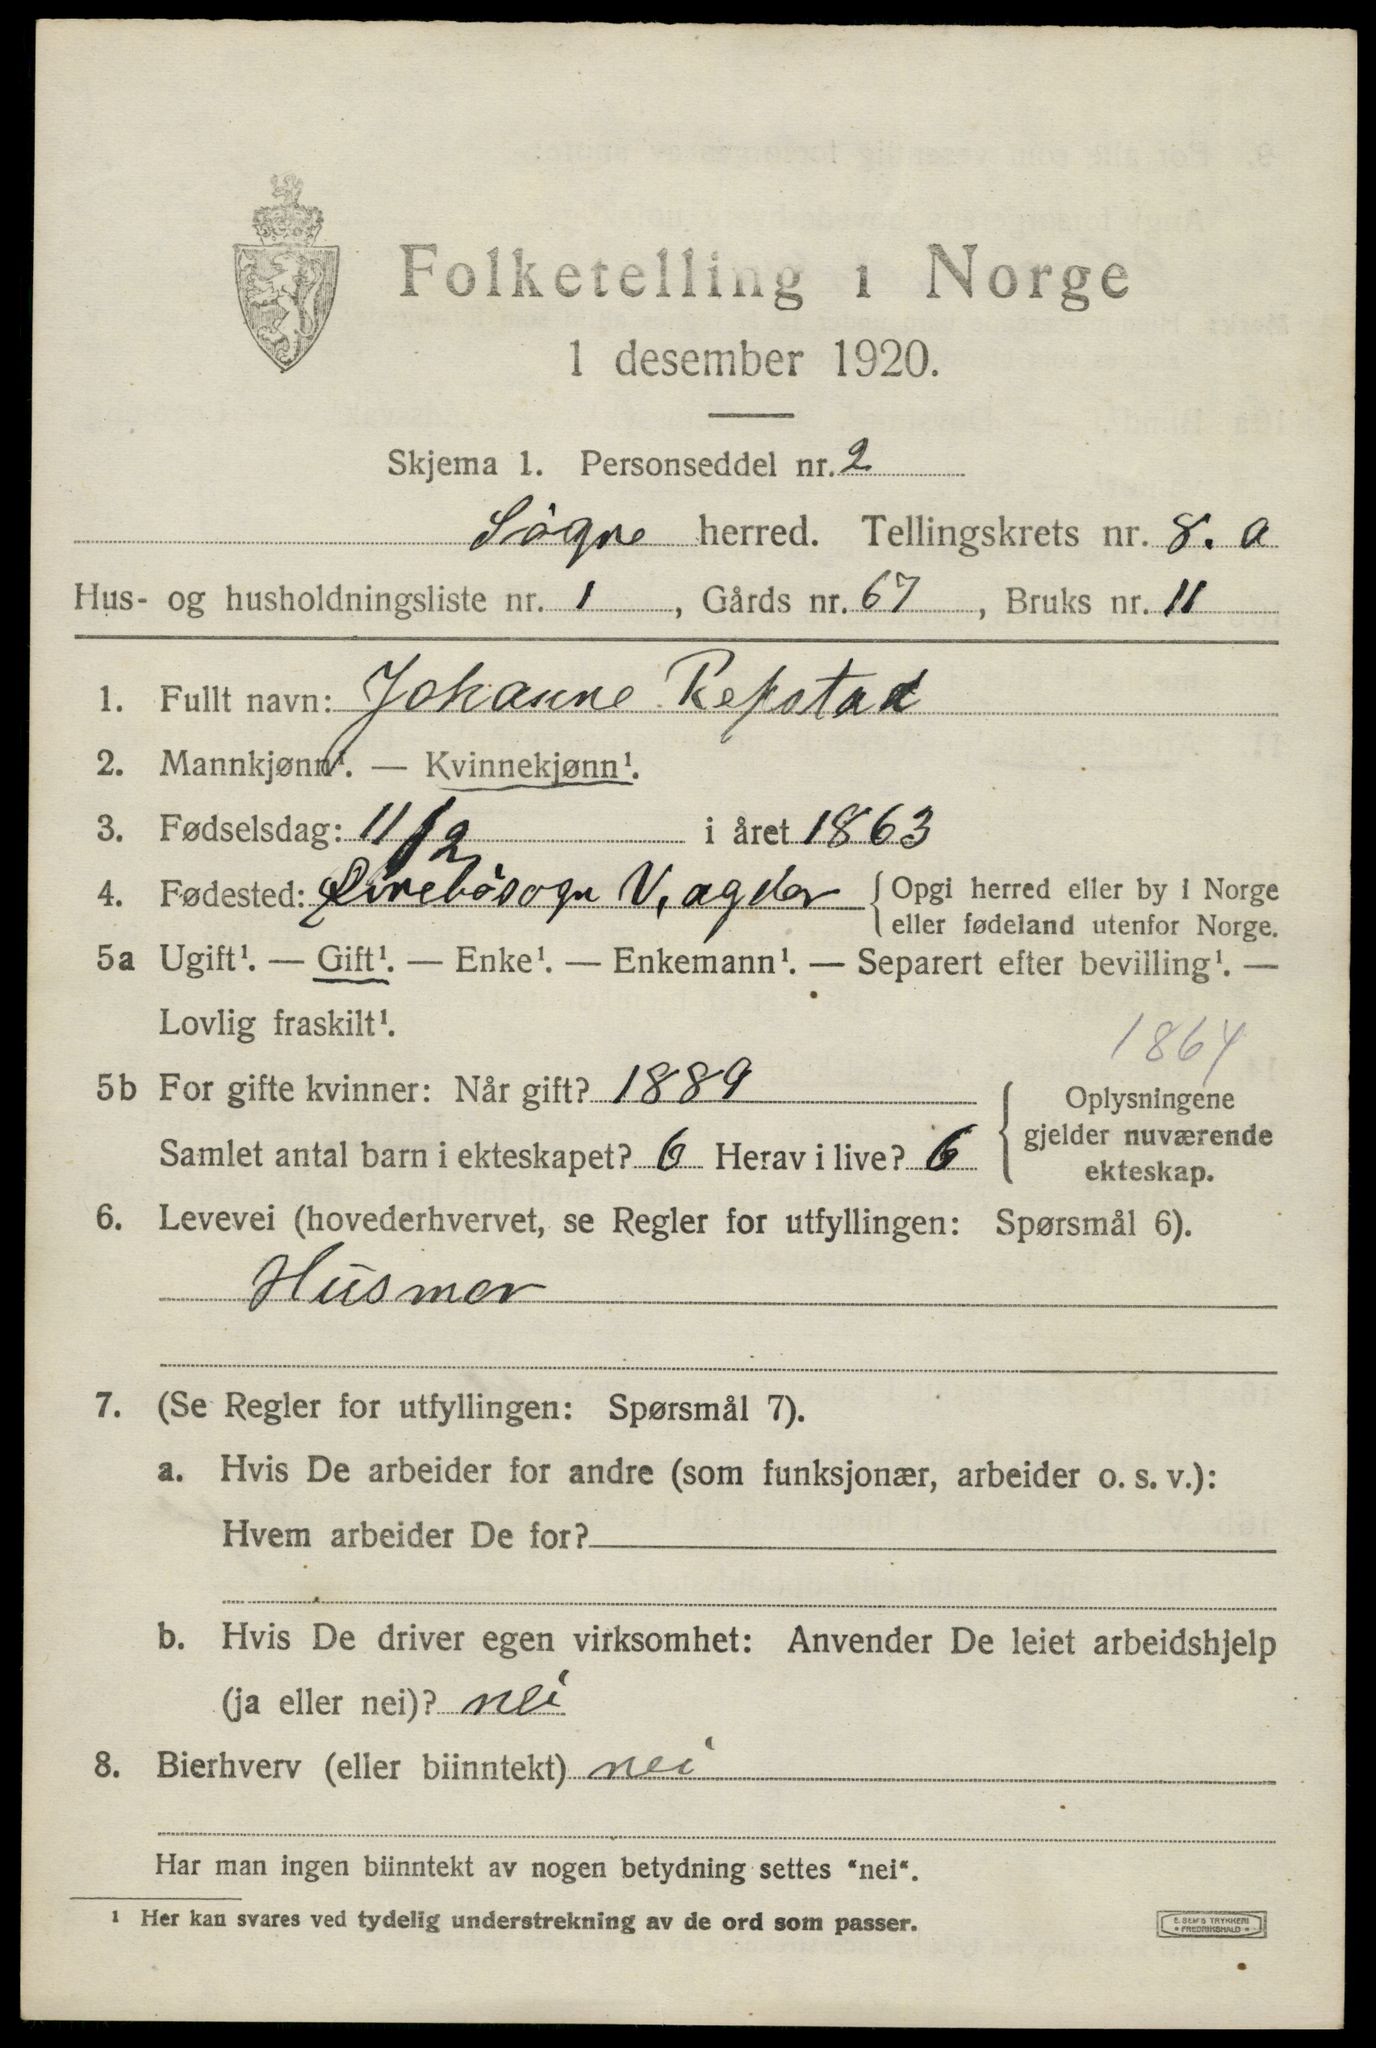 Folketelling i Norge
1 desember 1920.
Skjema 1. Personseddel nr. 2
Søgne herred. Tellingskrets nr. 8. a
Hus- og husholdningsliste nr. 1, Gårds nr. 67, Bruks nr. 11
1. Fullt navn: Johanne Repstad
2. Mannkjønn¹. — Kvinnekjønn¹.
3. Fødselsdag: 11/2 i året 1863
4. Fødested: Øvrebösogn V, agder { Opgi herred eller by i Norge
eller fødeland utenfor Norge.
5a Ugift¹. — Gift¹. — Enke¹. — Enkemann¹. — Separert efter bevilling¹. —
Lovlig fraskilt¹.
1864
5b For gifte kvinner: Når gift? 1889
Samlet antal barn i ekteskapet? 6 Herav i live? 6
{ Oplysningene
gjelder nuværende
ekteskap.
6. Levevei (hovederhvervet, se Regler for utfyllingen: Spørsmål 6).
Husmor
7. (Se Regler for utfyllingen: Spørsmål 7).
a. Hvis De arbeider for andre (som funksjonær, arbeider o. s. v.):
Hvem arbeider De for?
b. Hvis De driver egen virksomhet: Anvender De leiet arbeidshjelp
(ja eller nei)? nei
8. Bierhverv (eller biinntekt) nei
Har man ingen biinntekt av nogen betydning settes "nei".
¹ Her kan svares ved tydelig understrekning av de ord som passer.
E. SEM'S TRYKKERI
FREDRIKSHALD